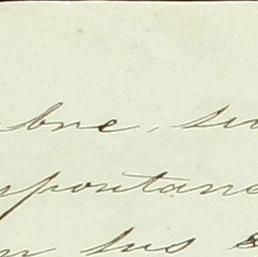 bre, su
spontane
n sus